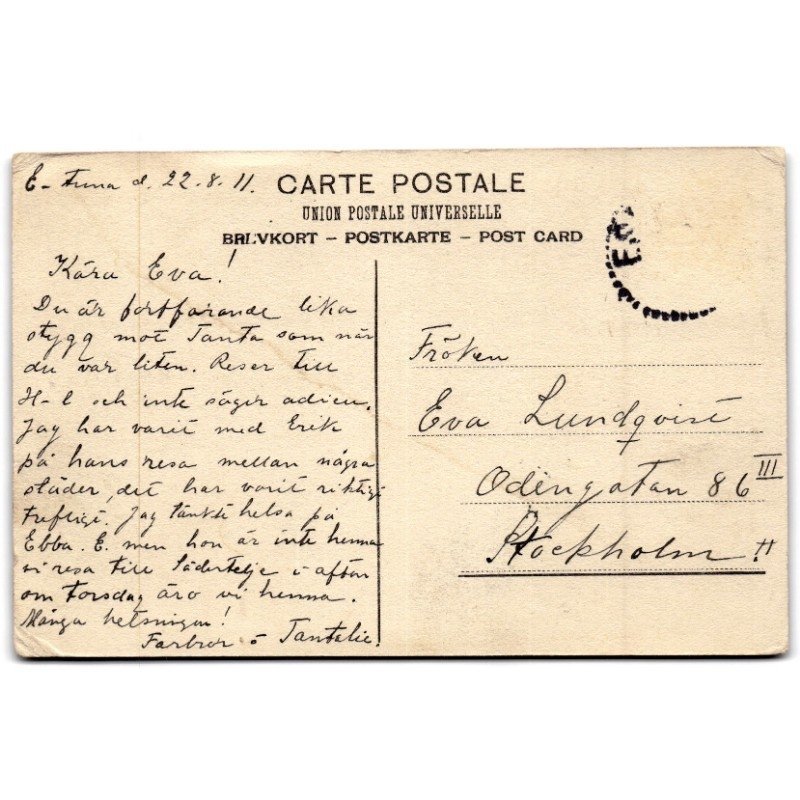 E-tuna d. 22-8-11.
CARTE POSTALE
UNION POSTALE UNIVERSELLE
BREVKORT – POSTKARTE – POST CARD
Kära Eva!
Du är fortfarande lika
stygg mot Tanta som när
du var liten. Reser till
H-l och inte säger adieu.
Jag har varit med Erik
på hans resa mellan några
städer, det har varit riktigt
trefligt. Jag tänkte helsa på
Ebba. E. men hon är inte hemma
vi resa till Södertelje i afton
om torsdag äro vi hemma.
Många helsningar!
Farbror o
Fröken
Eva Lundqvist
Odengatan 86 III
Stockholm